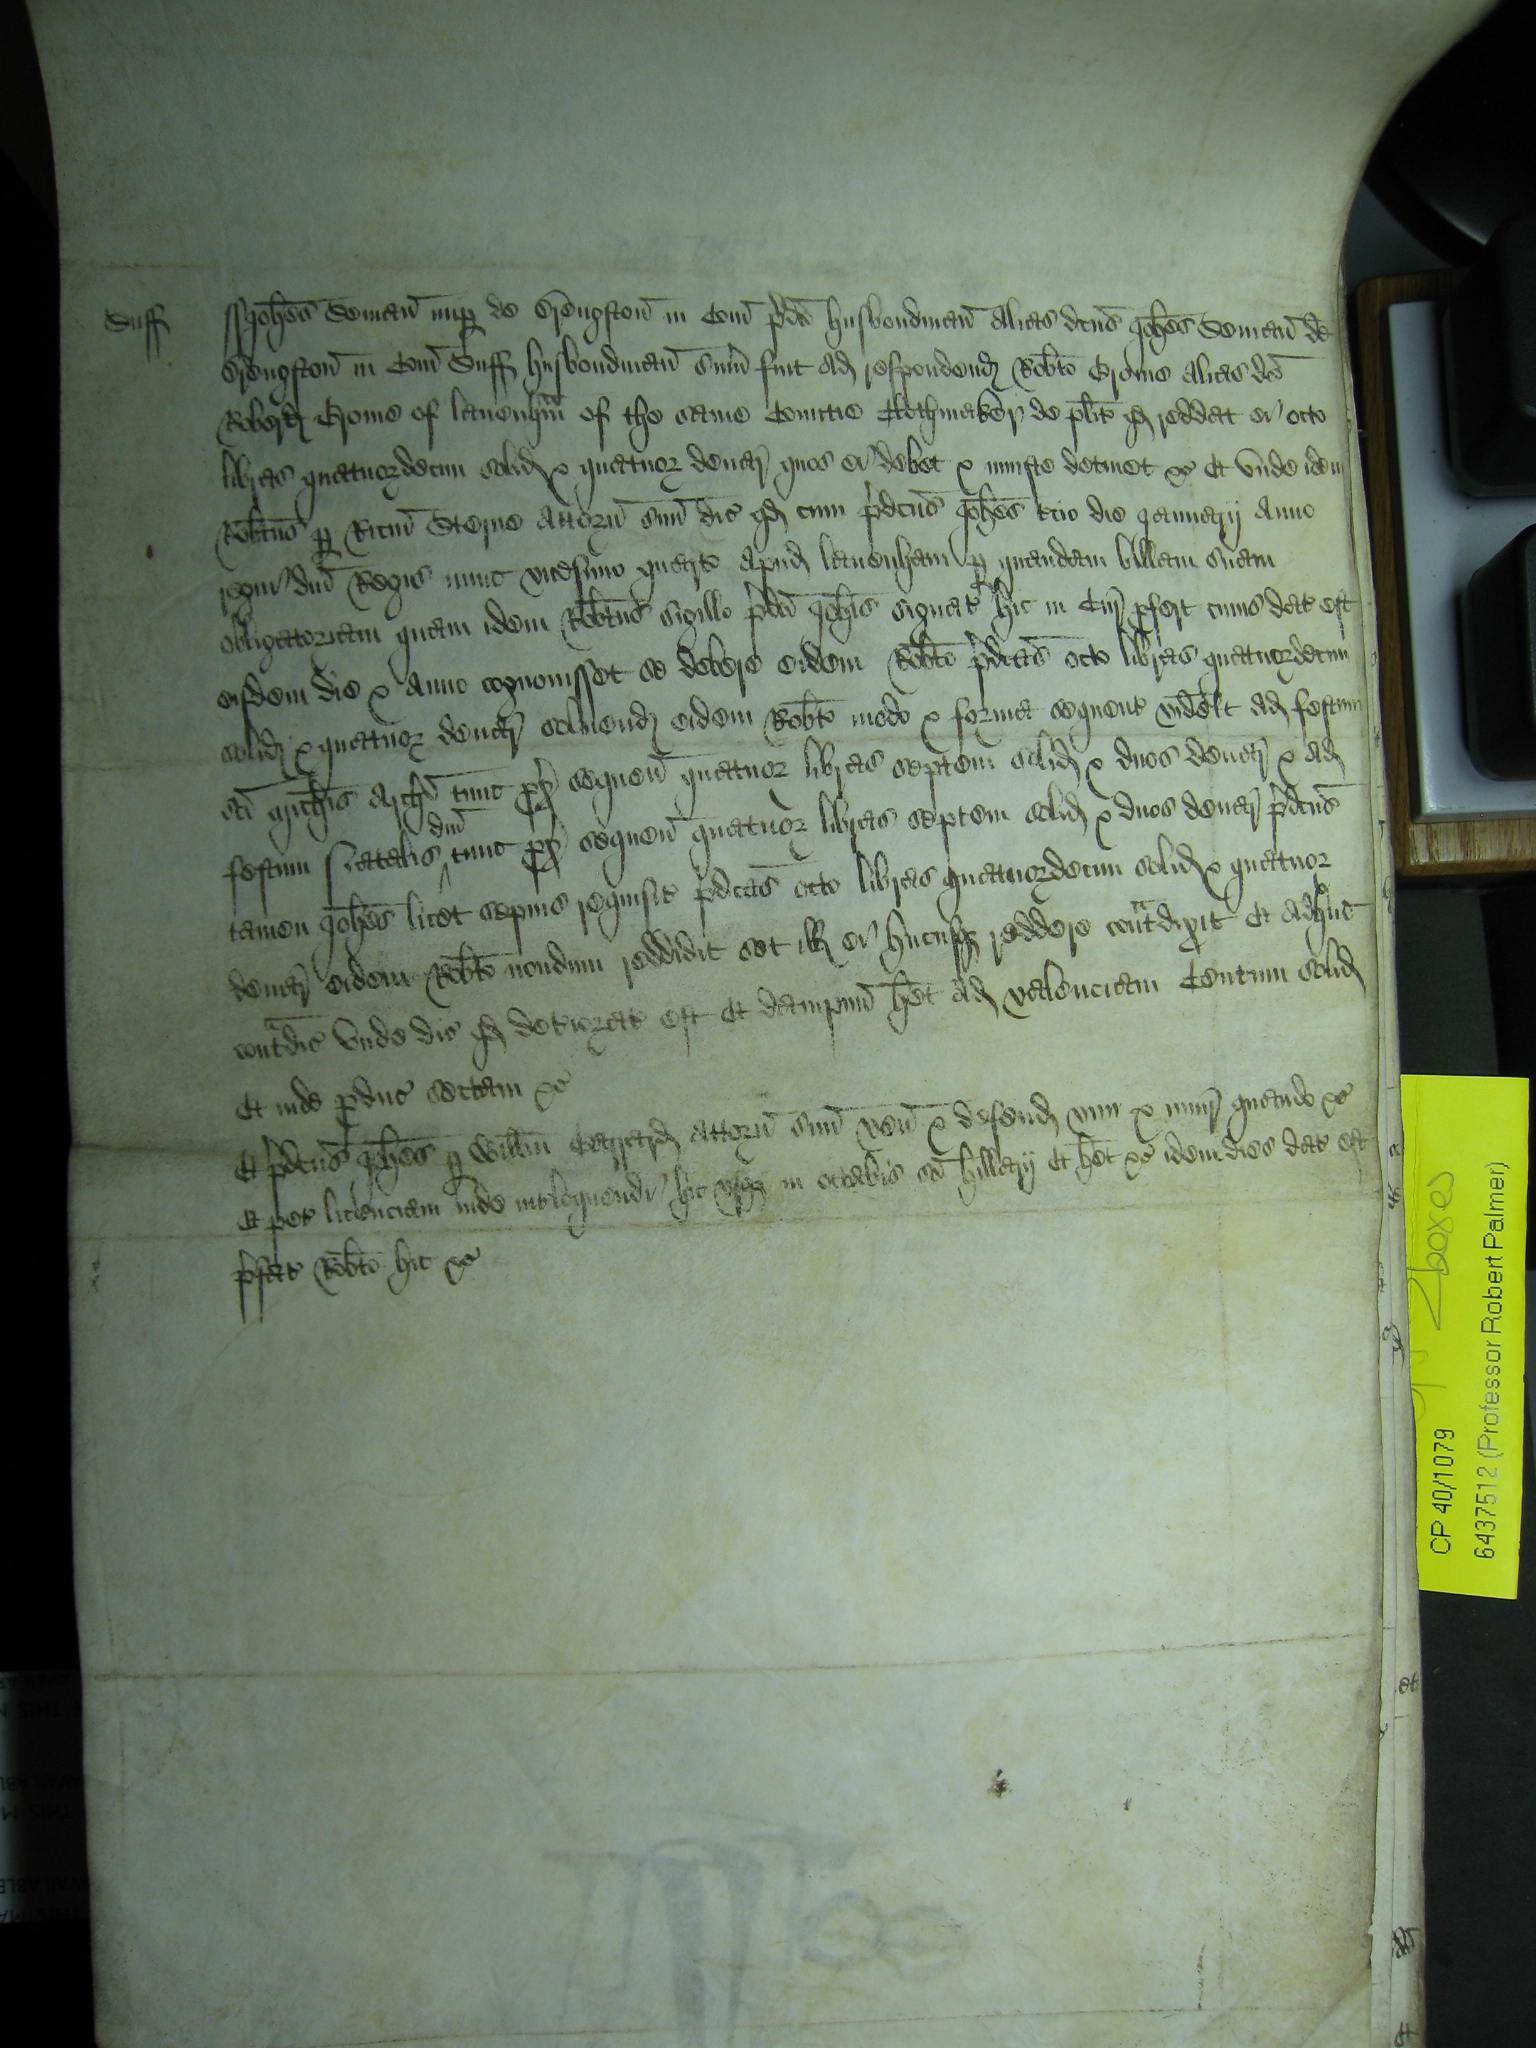 Suff
Joh̄es Seman̄ nup de Grengston̄ in Com̄ p̄dc̄o husbondman̄ alias dc̄us Joh̄es Seman̄ de
Grengston̄ in Com̄ Suff husbondman̄ sum̄ fuit ad respondend Rob̄to Crome alias dc̄o
Roberd Crome of lauenhm̄ of the same Comtie Clothmaker de plīto qd reddat ei octo
libras quatuordecim solid & quatuor denar quos ei debet & iniuste detinet &c Et vnde idem
Rob̄tus p Ricm̄ Sterne Attorn̄ suū dic qd cum p̄dc̄us Joh̄es die Januarij Anno
regni dn̄i Regis nunc vicesimo quarto apud lauenham p quandam billam suam
obligatoriam quam idem Rob̄tus sigillo p̄dc̄i Joh̄is signat hic in Cur p̄fert cuius dat est
eisdem die & Anno cognouisset se debere eidem Rob̄to p̄dc̄as octo libras quatuordecim
solid & quatuor denar soluend eidem Rob̄to modo & forma sequent vidēlt ad festum
sc̄i Mich̄is Archi tunc px̄ sequen̄ quatuor libras septem solid & duos denar & ad
festum Natalis dn̄i tunc px̄ sequen̄ quatuor libras septem solid & duos denar p̄dc̄us
tamen Joh̄es licet sepius requisit p̄dc̄as octo libras quatuordecim solid & quatuor
denar eidem Rob̄to nondum reddidit set ill ei hucusq reddere cont̄dixit Et adhuc
cont̄dic vnde dic qd deteriorat est Et dampnū h̄et ad valenciam Centum solid
Et inde p̄duc sectam &c
Et p̄dc̄us Joh̄es p Will̄m attorn̄ suū ven̄ & defend vim & iniur quando &c
Et pet licenciam inde int̄loquendi hic vsq in octabis sc̄i hillarij Et h̄et &c idem dies dat est
p̄fat Rob̄to hic &c
2boxes
CP 40/1079
6437512 (Professor Robert Palmer)